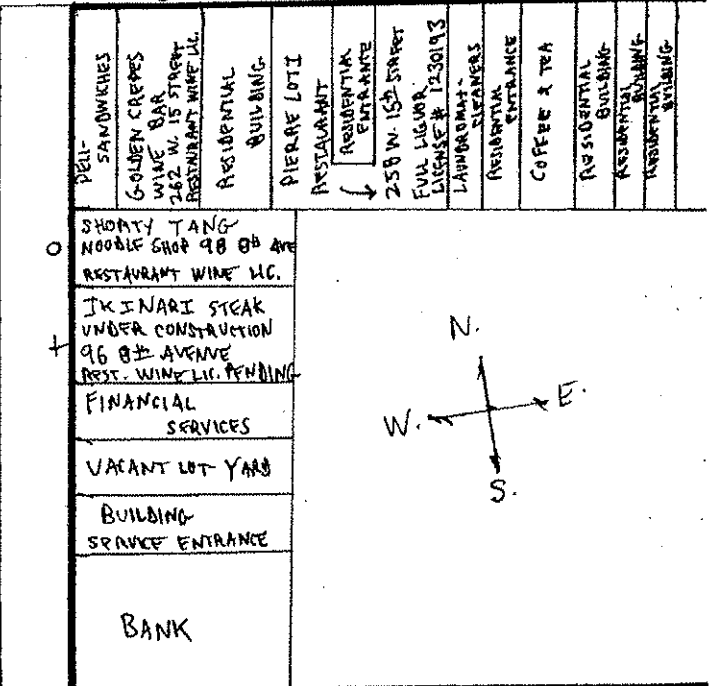 DELI-
SANDWICHES
GOLDEN CREPES
WINE BAR
262 W. 15 STREET
RESTAURANT WINE LIC.
RESIDENTIAL
BUILDING
PIERRE LOTI
RESTAURANT
RESIDENTIAL
ENTRANCE
258 W. 15th STREET
FULL LIQUOR
LICENSE # 1230193
LAUNDROMAT-
CLEANERS
RESIDENTIAL
ENTRANCE
COFFEE & TEA
RESIDENTIAL
BUILDING
RESIDENTIAL
BUILDING
RESIDENTIAL
BUILDING
SHORTY TANG
NOODLE SHOP 98 8th AVE
RESTAURANT WINE LIC.
IKINARI STEAK
UNDER CONSTRUCTION
96 8th AVENUE
REST. WINE LIC. PENDING
FINANCIAL
SERVICES
VACANT LOT YARD
BUILDING
SERVICE ENTRANCE
BANK
N.
W.
E.
S.